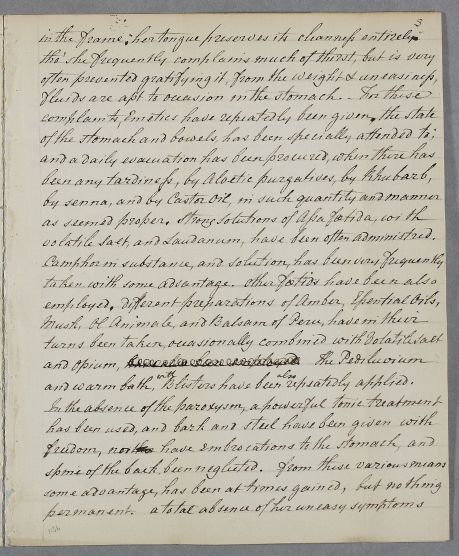 3
in the frame; her tongue preserves its cleanness entirely;
tho' she frequently complains much of thirst, but is very
often prevented gratifying it, from the weight & uneasiness,
fluids are apt to occasion in the stomach. - For these
complaints, emetics have repeatedly been given, the state
of the stomach and bowels has been specially attended to;
and a daily evacuation has been procured, when there has
been any tardiness, by Aloetic purgatives, by Rhubarb,
by senna, and by Castor Oil, in such quantity and manner
as seemed proper. Strong solutions of Asa foetida, with
volatile salt, and Laudanum, have been often administred.
Camphor in substance, and solution, has been very frequently
taken with some advantage. Other foetids have been also
employed. Different preparations of Amber, Essential Oils,
Musk, Ol Animale, and Balsam of Peru, have in their
turns been taken, occasionally combined with Volatile Salt
and Opium, have also been employed the Pediluvium
and warm bath, with Blisters have been also repeatedly applied.
In the absence of the paroxysm, a powerful tonic treatment
has been used, and bark and steel have been given with
freedom, nor have embrocations to the stomach, and
spine of the back been neglected. From these various means
some advantage, has been at times gained, but nothing
permanent. a total absence of her uneasy symptoms